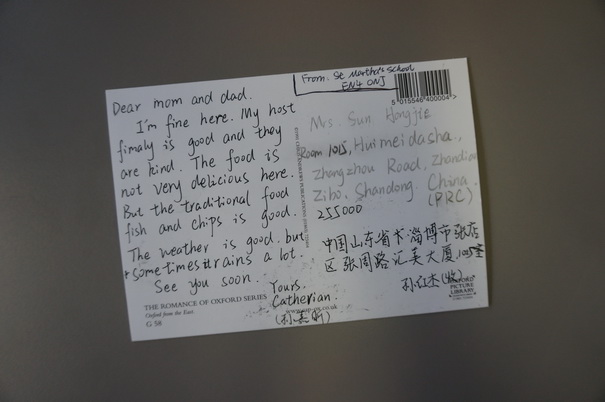 From: St Martha's School
EN4 0NJ
5 015546 400004 >
Dear mom and dad.
I'm fine here. My host
fimaly is good and they
are kind. The food is
not very delicious here.
But the traditional food
fish and chips is good.
The weather is good. but
sometimes it rains a lot.
See you soon.
Yours.
Catherian.
Mrs. Sun. Hongjie
Room 1015, Huimeidasha,
Zhangzhou Road, Zhangdian
Zibo. Shandong. China.
(PRC)
255000
中国山东省 淄博市张店
区张周路汇美大厦 1015室
孙红杰(收)
THE ROMANCE OF OXFORD SERIES
Oxford from the East
G 58
OXFORD
PICTURE
LIBRARY